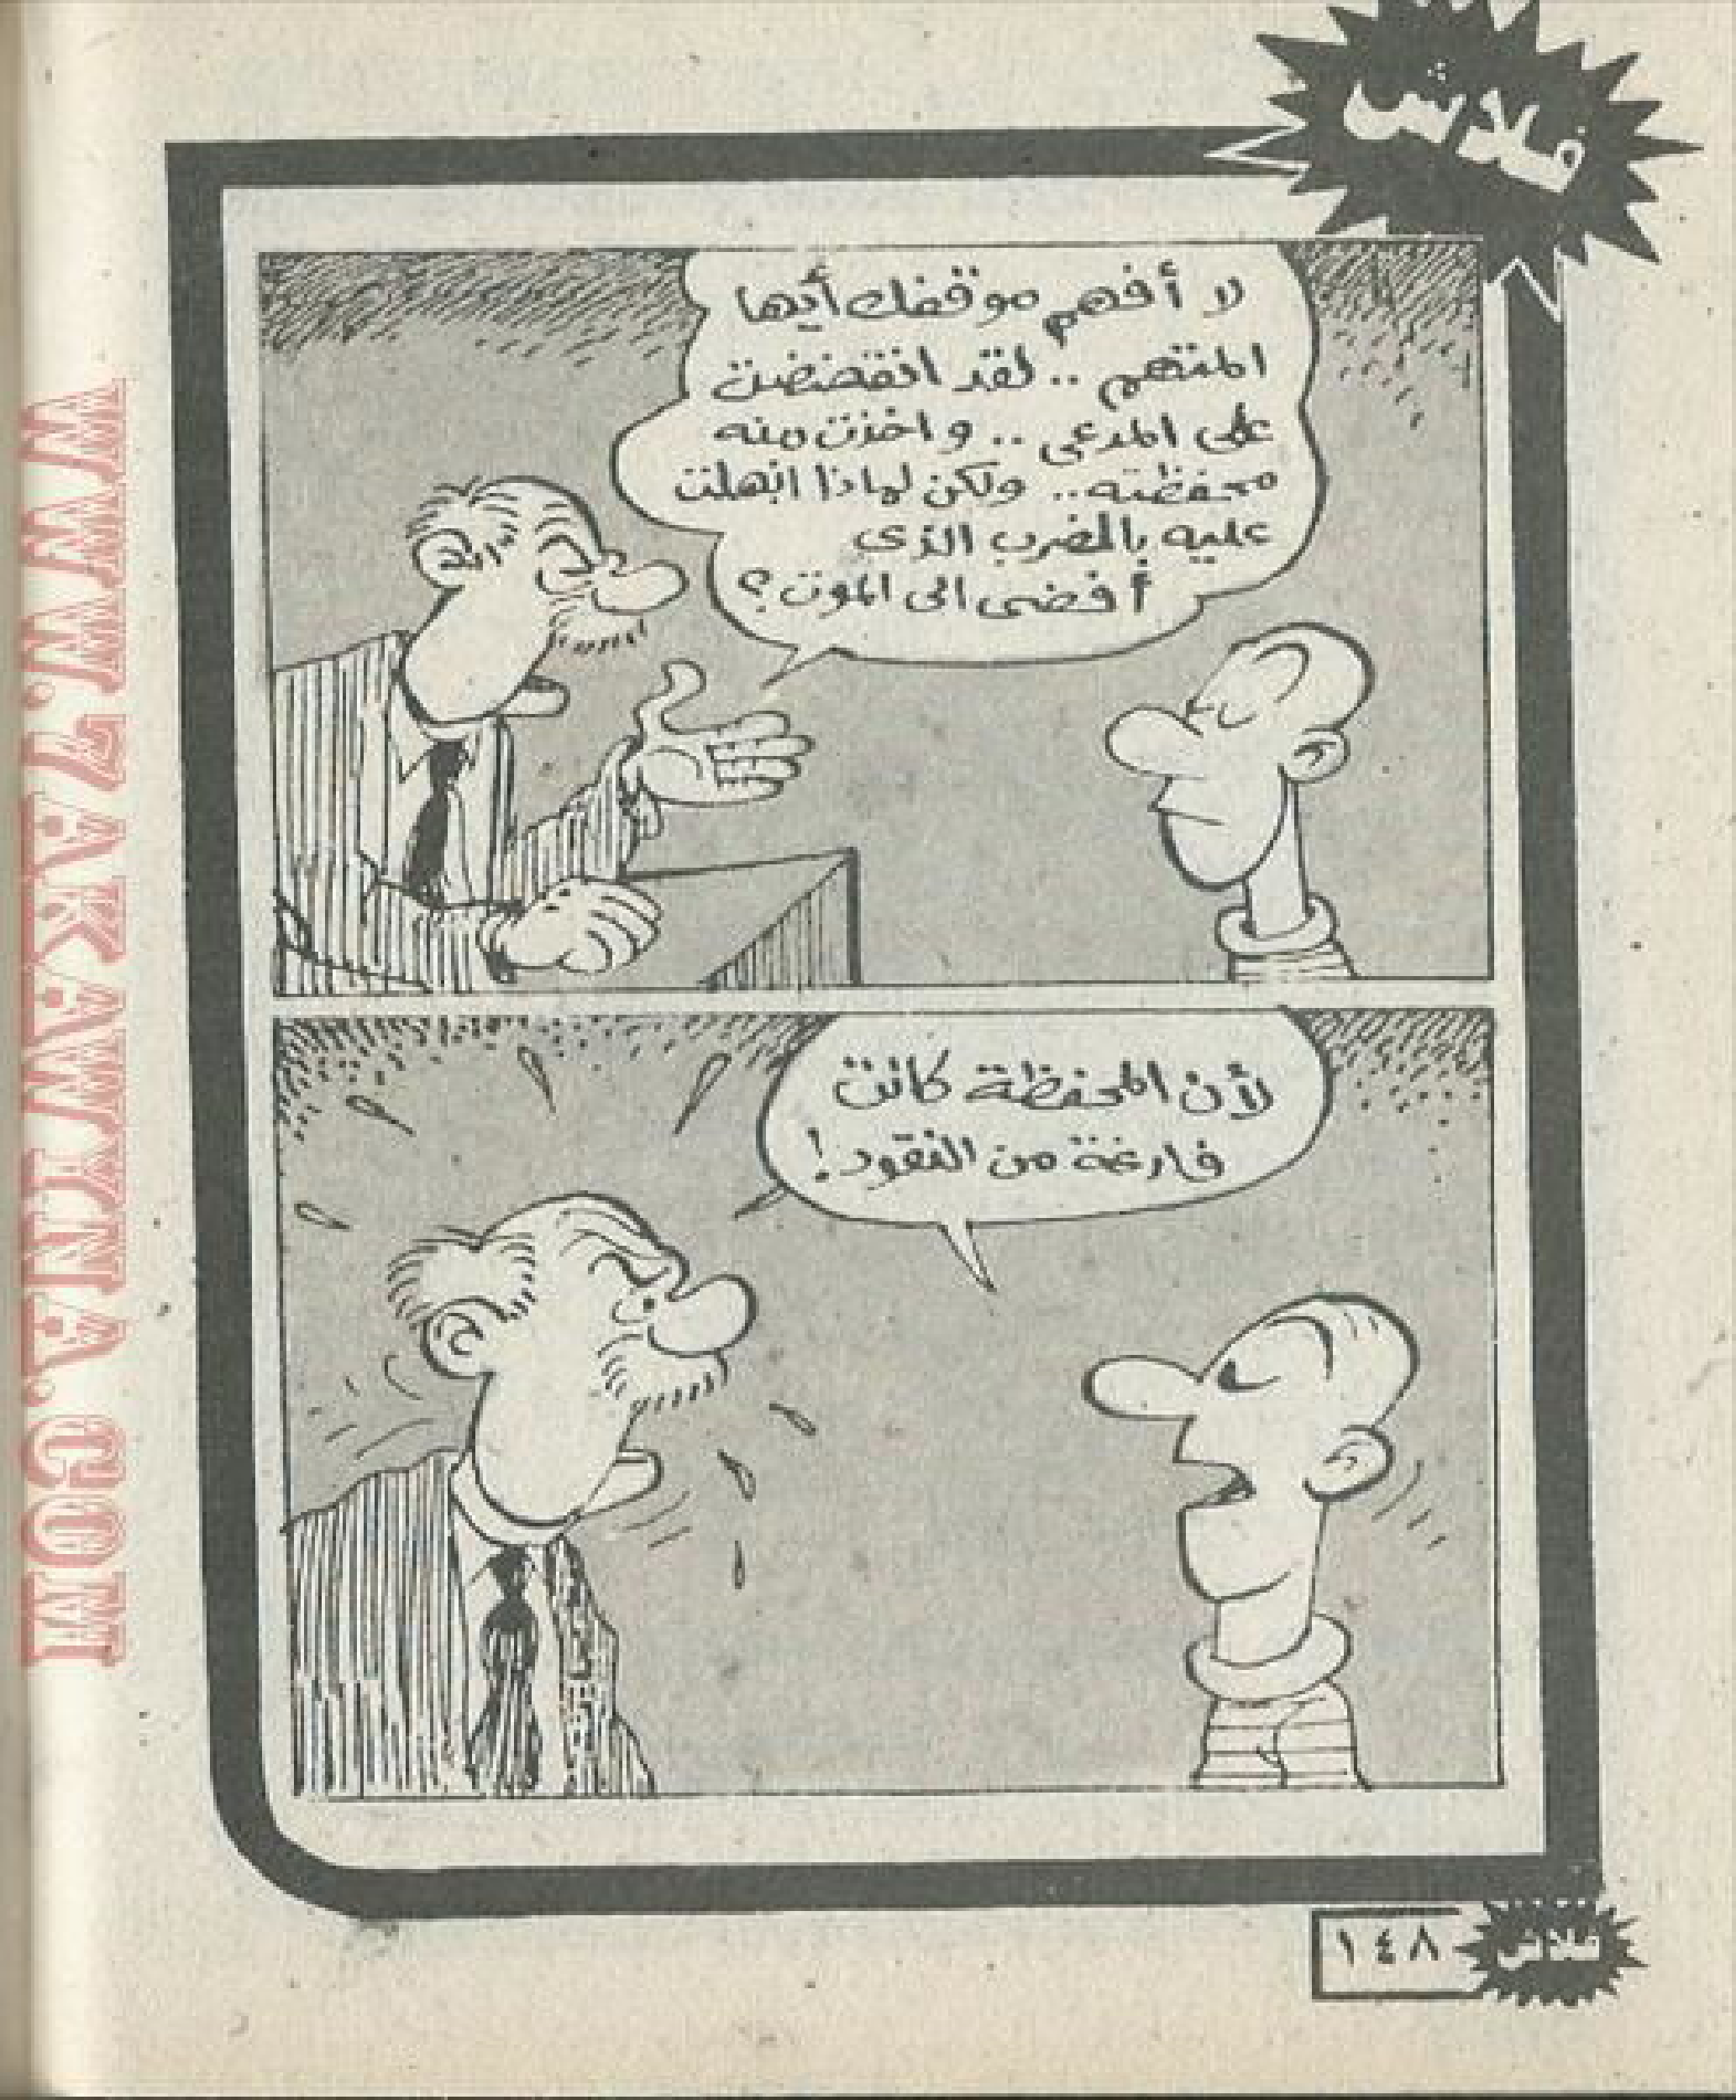 فلاش
لا أفهم موقفك أيها
المتهم .. لقد انقضضت
على المدعى .. واخذت منه
محفظته .. ولكن لماذا انهلت
عليه بالضرب الذى
أفضى الى الموت؟
لأن المحفظة كانت
فارغة من النقود!
فلاش
١٤٨
WWW.7AKAWITNA.COM